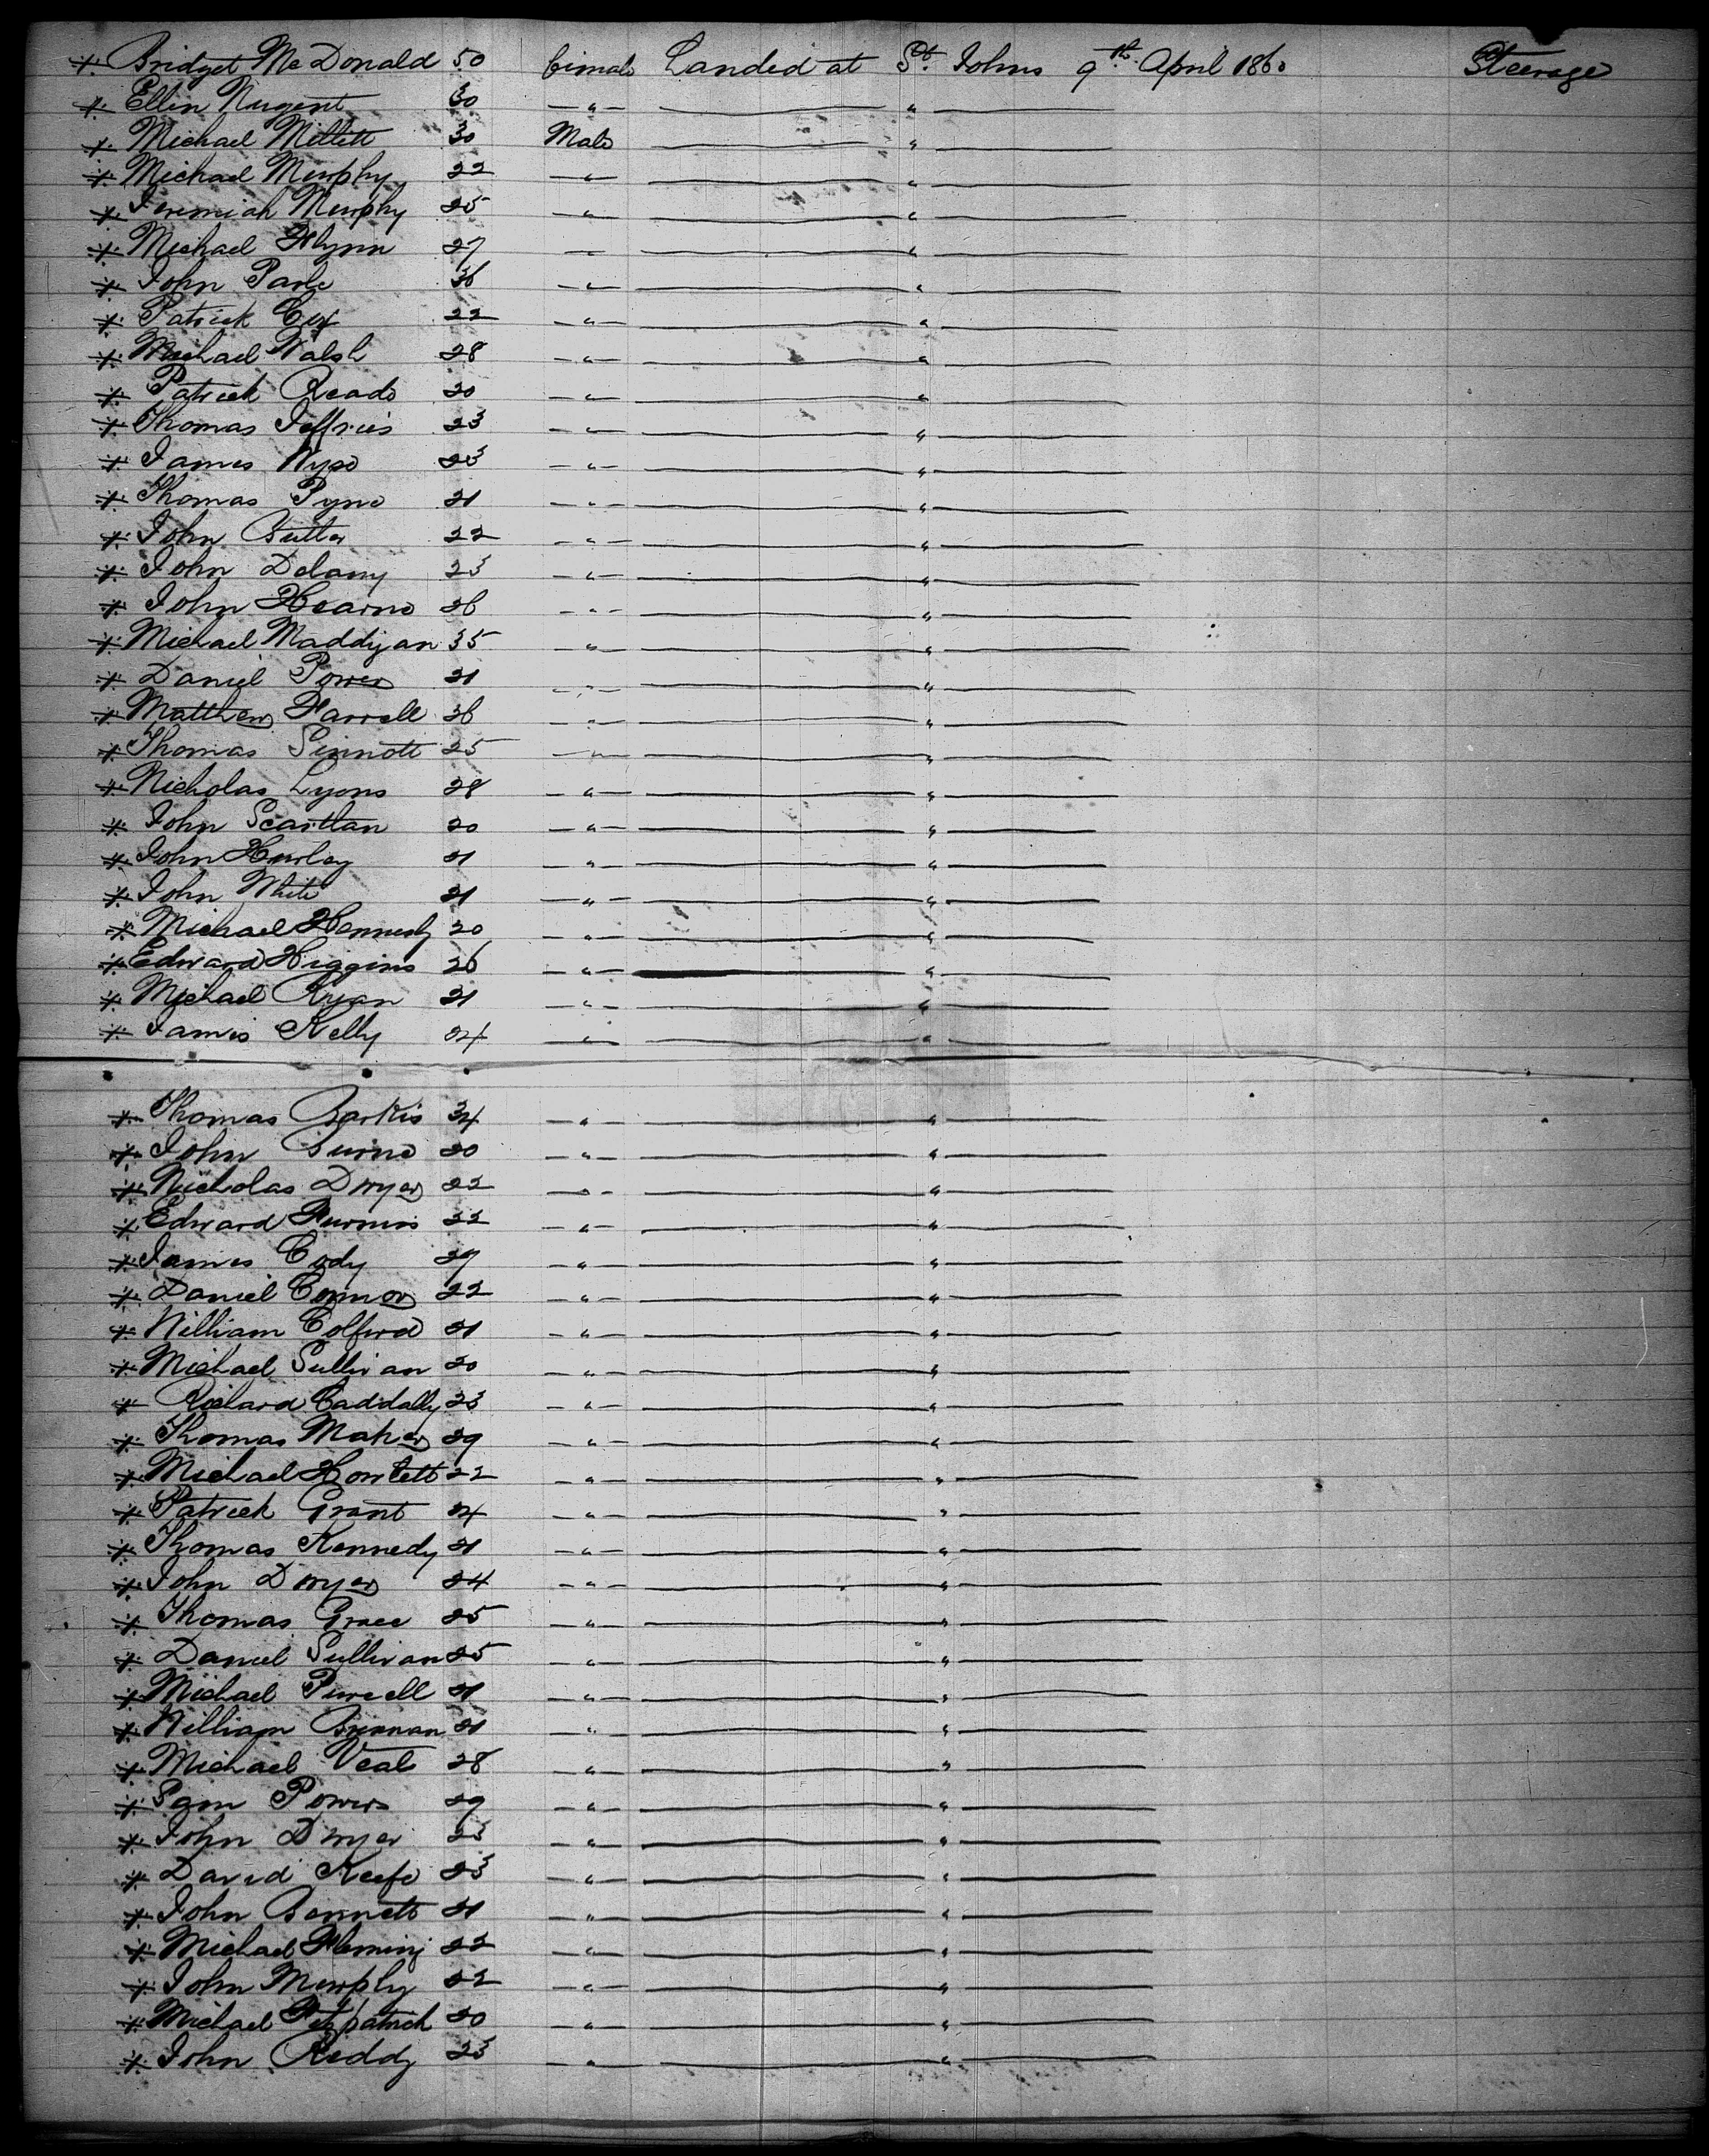 + Bridget McDonald 50 female Landed at St. Johns 9th April 1860 Steerage
+ Ellin Nugent 30 — " — "
+ Michael Millett 30 Male "
+ Michael Murphy 22 — " — "
+ Jeremiah Murphy 25 " "
+ Michael Flynn 27 — "
+ John Parle 36 — " — "
+ Patrick Cox 22 — " — "
+ Michael Walsh 28 — " — "
+ Patrick Reade 20 — " — "
+ Thomas Jeffries 23 — " — "
+ James Wyse 23 — " — "
+ Thomas Pyne 21 — " — "
+ John Butler 22 — " — "
+ John Delany 23 — " — "
+ John Hearne 26 — " — "
+ Michael Maddigan 35 " "
+ Daniel Power 21 — " — "
+ Matthew Farrell 36 — " — "
+ Thomas Sinnott 25 — " — "
+ Nicholas Lyons 28 — " — "
+ John Scartlan 20 — " — "
+ John Hurley 21 " "
+ John White 21 — " — "
+ Michael Hennesly 20 — " — "
+ Edward Higgins 26 — " — "
+ Michael Ryan 21 — " — "
+ James Kelly 24 — " — "
+ Thomas Barkis 34 — " — "
+ John Burne 20 — " — "
+ Nicholas Dwyer 22 — " — "
+ Edward Furniss 22 — " — "
+ James Cody 27 — " — "
+ Daniel Connor 22 — " — "
+ William Colford 21 — " — "
+ Michael Sullivan 20 — " — "
+ Richard Caddally 23 — " — "
+ Thomas Maher 29 — " — "
+ Michael Howlett 22 — " — "
+ Patrick Grant 24 — " — "
+ Thomas Kennedy 21 — " — "
+ John Dwyer 24 — " — "
+ Thomas Grace 25 — " — "
+ Daniel Sullivan 25 — " — "
+ Michael Purcell 21 — " — "
+ William Brennan 21 — " — "
+ Michael Veale 28 — " — "
+ Sam Powers 29 — " — "
+ John Dwyer 23 — " — "
+ David Keefe 23 — " — "
+ John Bennett 21 — " — "
+ Michael Fleming 22 — " — "
+ John Murphy 22 — " — "
+ Michael Fitzpatrick 20 — " — "
+ John Reddy 23 — " — "